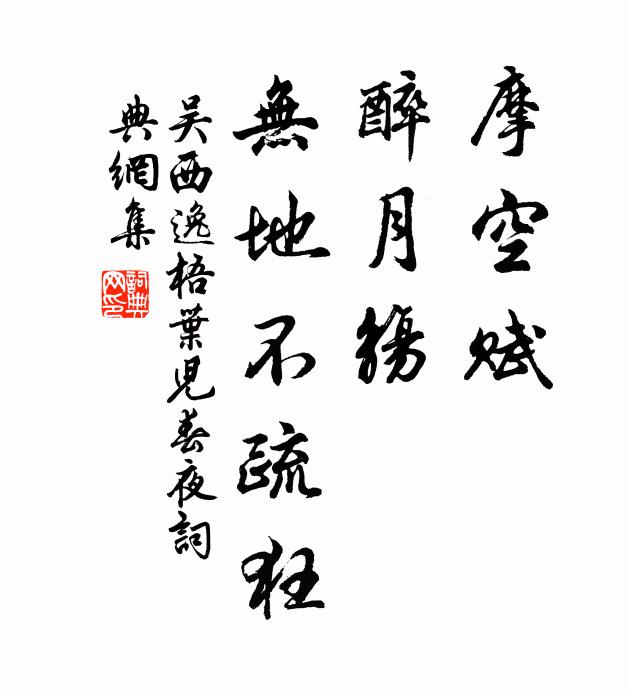 摩空賦
醉月觴
無地不疏狂
吳西逸梧葉兒春夜詞
典網集
詞典網印